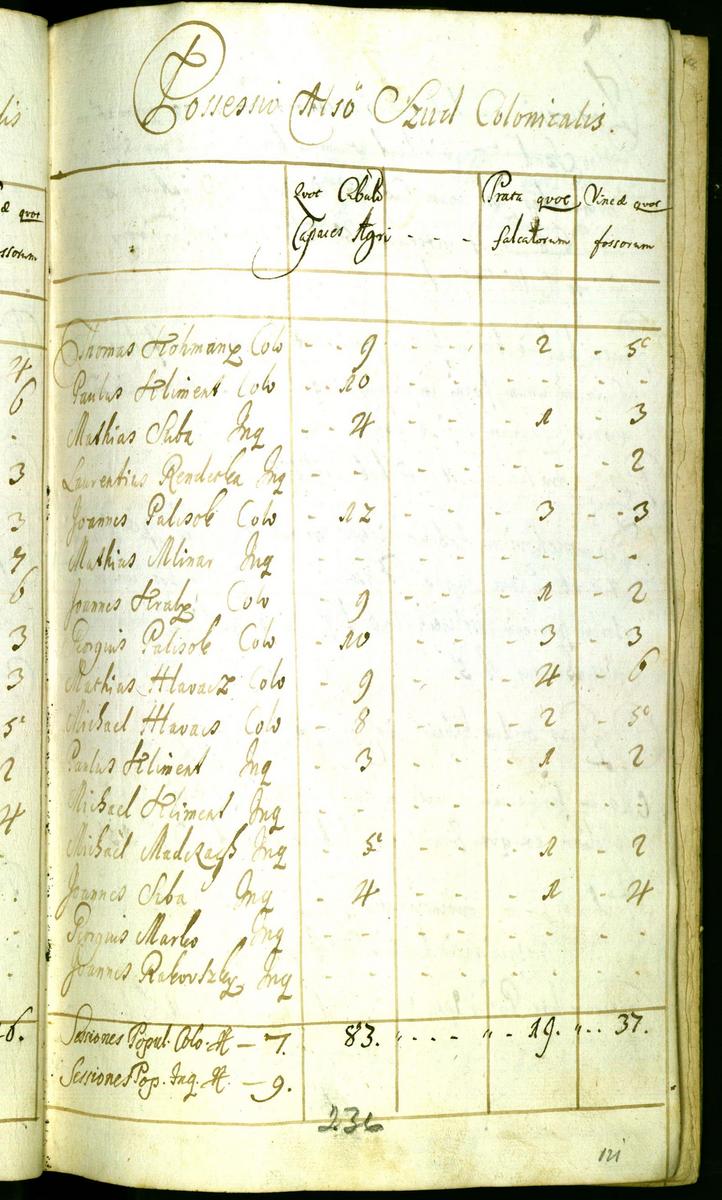 Possessio Alsó Szúd Colonicalis.
Quot Cubul. Prata quot Vineæ quot
Capaces Agri - - - falcatorum fossorum
Thomas Hohmany Colo - - 9 - - - - 2 - 5
Paulus Kliment Colo - 10 - - - - - - -
Mathias Suba Inq - 4 - - - - 1 - 3
Laurentius Renderka Inq - - - - - - - - 2
Joannes Palisok Colo - 12 - - - - 3 - 3
Mathias Mlinar Inq - - - - - - - - -
Joannes Kraly Colo - 9 - - - - 1 - 2
Georgius Palisok Colo - 10 - - - - 3 - 3
Mathias Hlavacz Colo - 9 - - - - 4 - 6
Michael Hlavacs Colo - 8 - - - - 2 - 5
Paulus Kliment Inq - 3 - - - - 1 - 2
Michael Kliment Inq - - - - - - - - -
Michael Madczach Inq - 5 - - - - 1 - 2
Joannes Suba Inq - 4 - - - - 1 - 4
Georgius Marko Inq - - - - - - - - -
Joannes Rakovszky Inq - - - - - - - - -
Sessiones Popul. Colo. # — 7. 83. " - - - " - 19. " - - 37.
Sessiones Pop. Inq. # — 9.
236
121